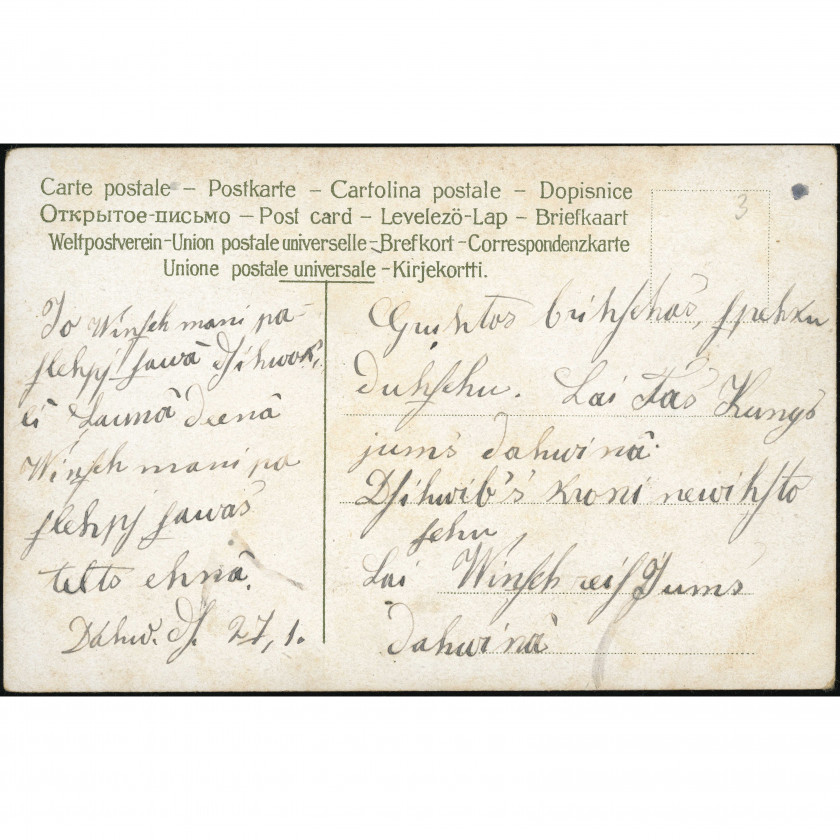 Carte postale – Postkarte – Cartolina postale – Dopisnice
Открытое-письмо – Post card – Levelező-Lap – Briefkaart
Weltpostverein-Union postale universelle – Brefkort – Correspondenzkarte
Unione postale universale – Kirjekortti.
3
Jo Winsch mani pa-
slehpj sawâ dsihwok,
ĩ launâ deenâ
Winsch mani pa
slehpj sawas
telts ehnâ.
Dahw. ds. 27, 1.
Gruhtos brihschos, spehku
duhschu. Lai tas Kungs
jums dahwinâ.
Dsihwib's kroni newihsto
schu,
Lai Winsch reis Jums
dahwinâ